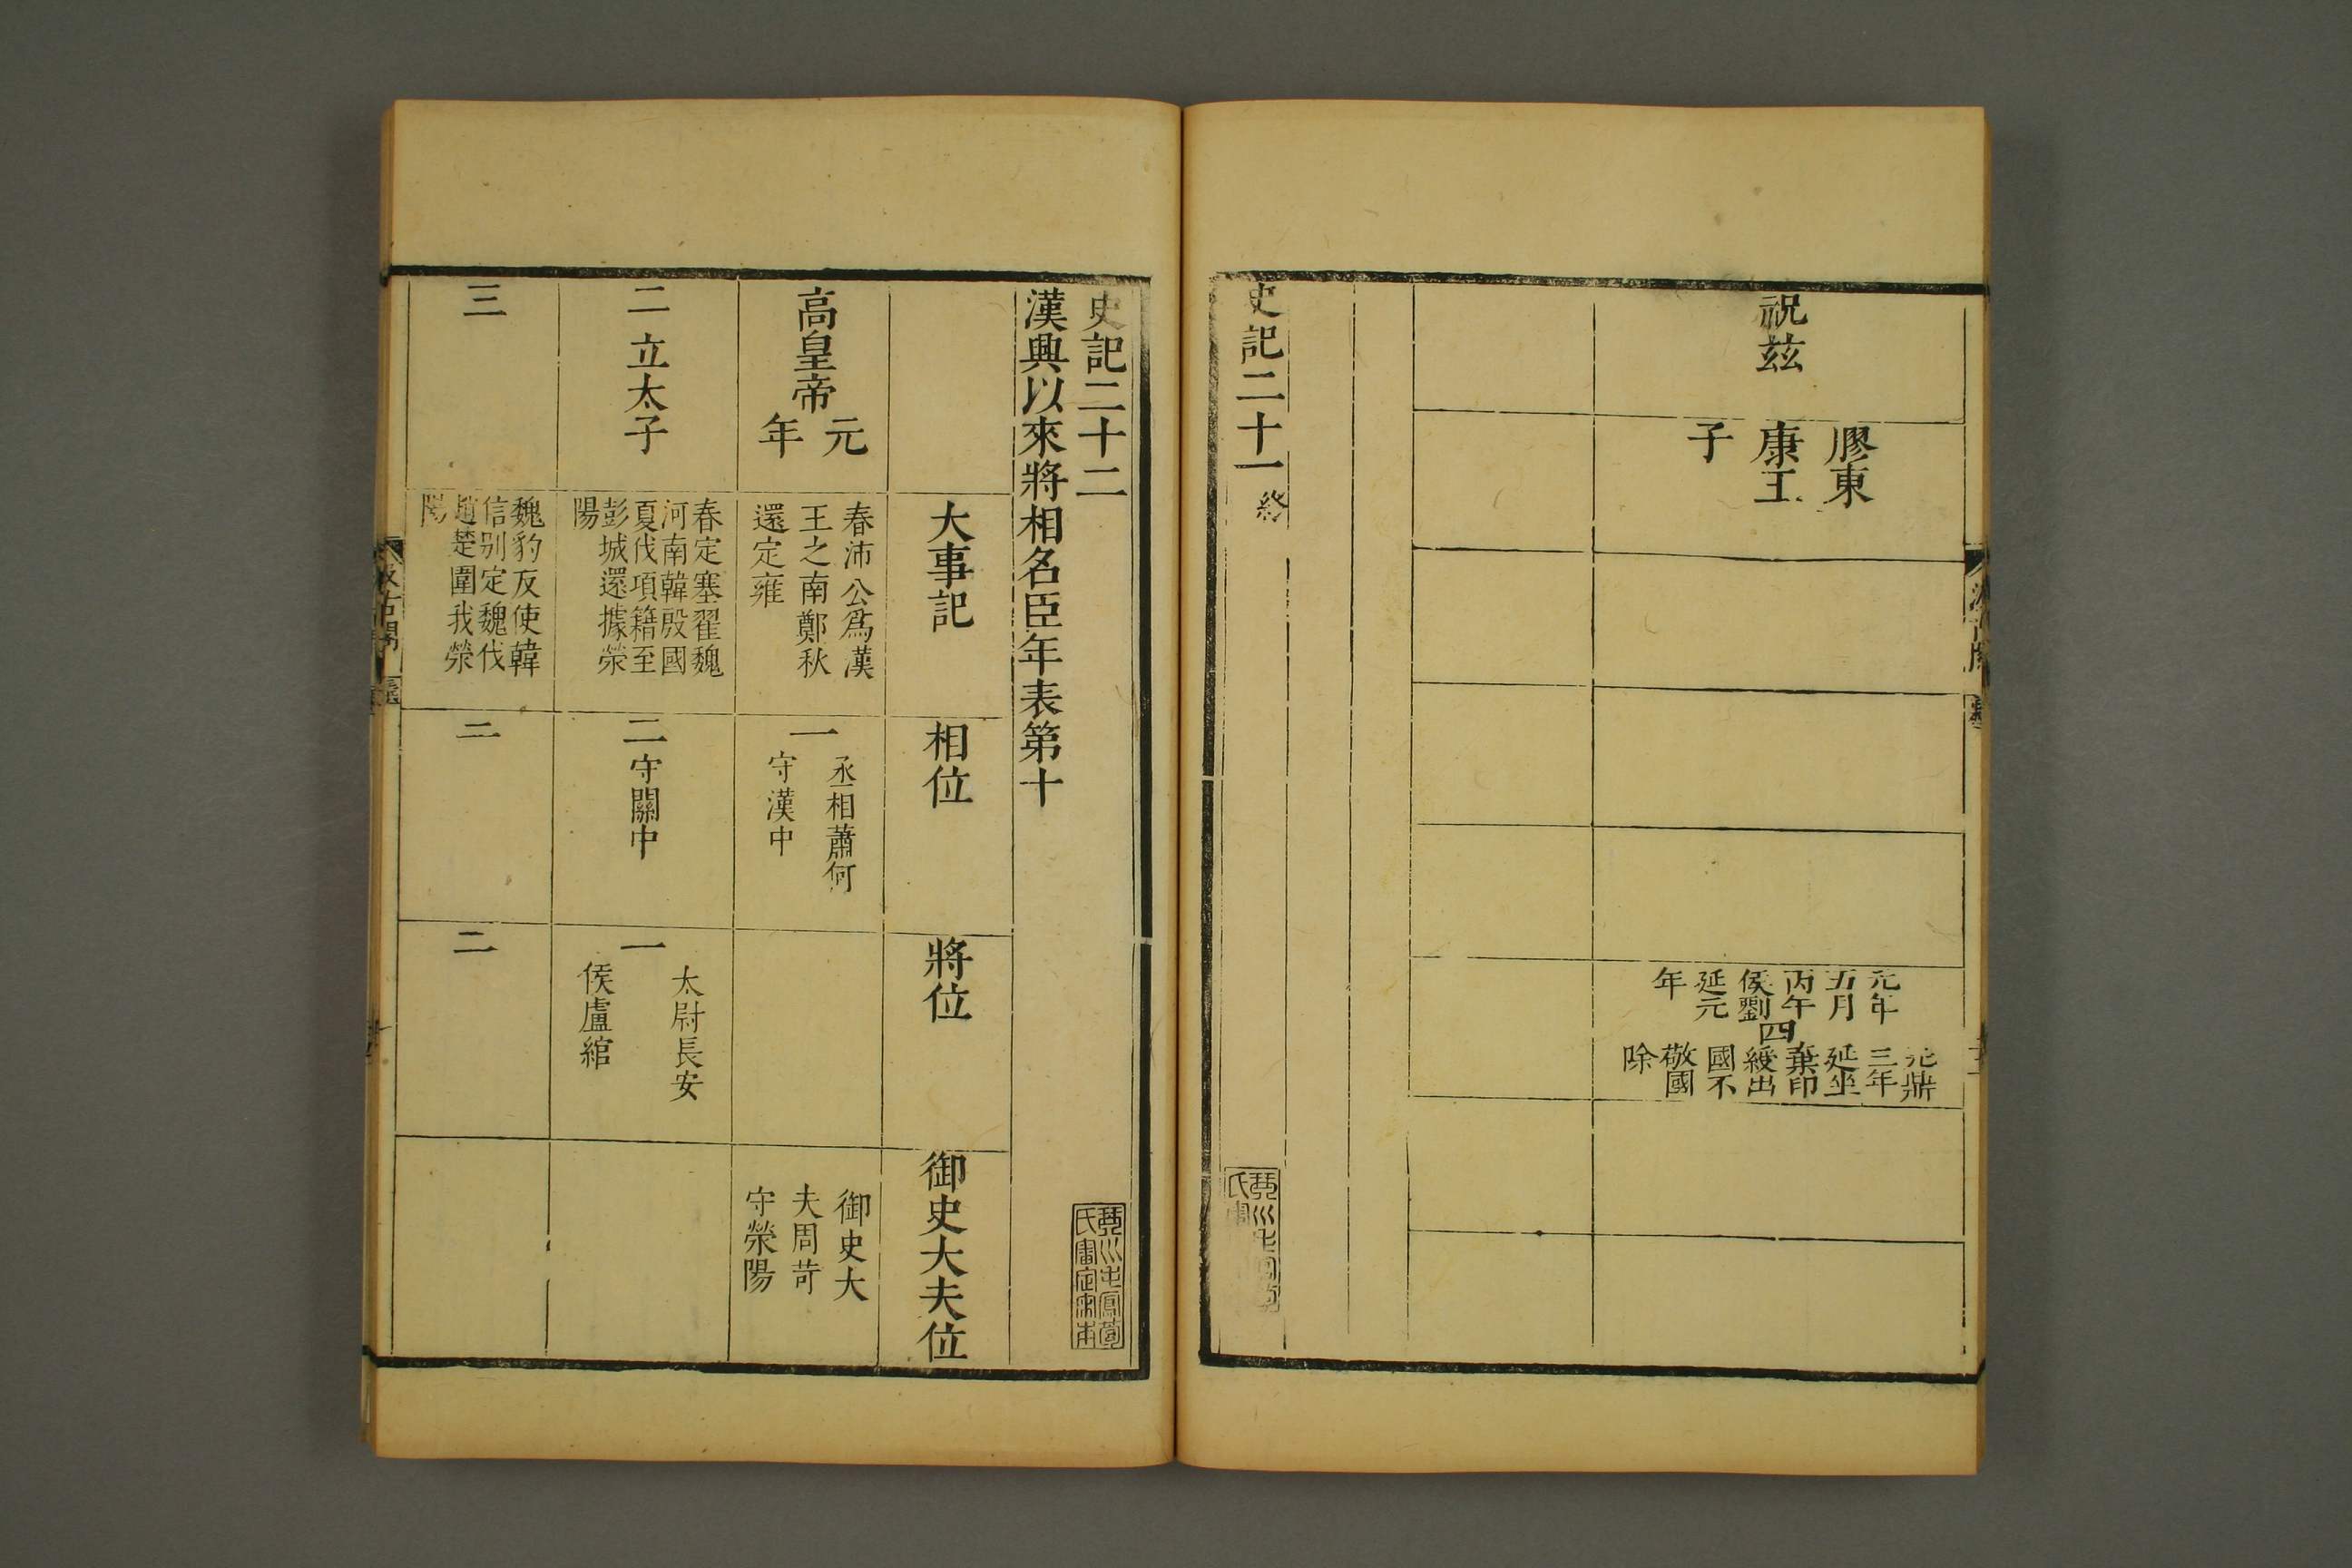 祝茲
膠東
康王
子
元年
五月
丙午
侯劉
延元
年
四
元鼎
三年
延坐
棄印
綬出
國不
敬國
除
史記二十一 終
史記二十二
漢興以來將相名臣年表第十
大事記
相位
將位
御史大夫位
高皇帝
元
年
春沛公爲漢
王之南鄭秋
還定雍
一
丞相蕭何
守漢中
御史大
夫周苛
守滎陽
二 立太子
春定塞翟魏
河南韓殷國
夏伐項籍至
彭城還據滎
陽
二
守關中
一
太尉長安
侯盧綰
三
魏豹反使韓
信別定魏伐
趙楚圍我滎
陽
三
二